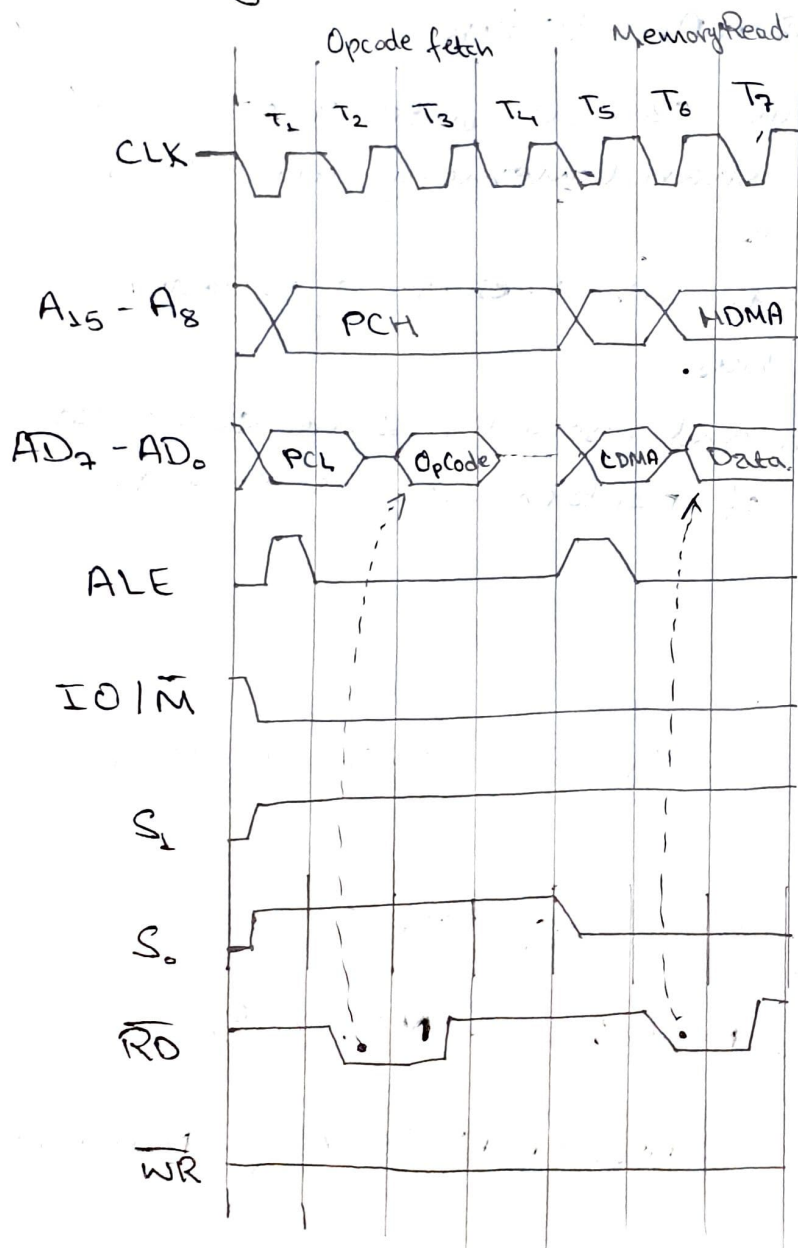 Opcode fetch MemoryRead
T₁ T₂ T₃ T₄ T₅ T₆ T₇
CLK
A₁₅ - A₈ PCH HDMA
AD₇ - AD₀ PCL OpCode CDMA Data
ALE
IO/M̅
S₁
S₀
R̅D̅
W̅R̅